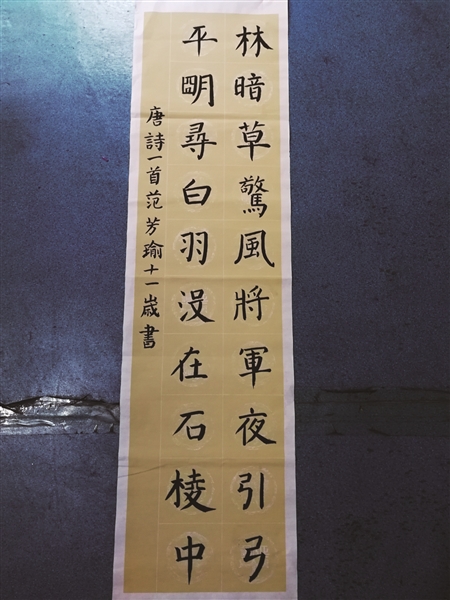 林暗草驚風將軍夜引弓
平明尋白羽沒在石棱中
唐詩一首范芳瑜十一歲書